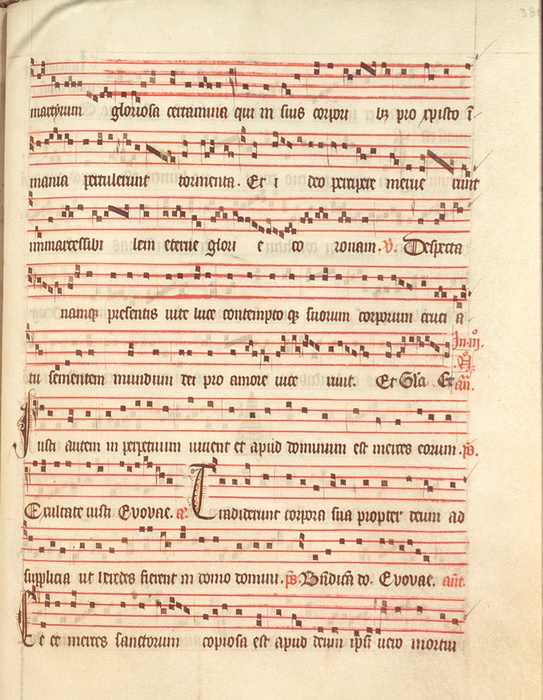 martyrum gloriosa certamina qui in suis corpori bus pro xpisto i
mania pertulerunt tormenta. Et i deo percipere merue runt
immarcessibi lem eterne glori e co ronam. v. Despecta
namque presentis vite luce contempto que suorum corporum cruci a
tu sementem mundum dei pro amore vice runt. Et Gla Et
an.
Iusti autem in perpetuum vivent et apud dominum est merces eorum. ps.
Exultate iusti Evovae. a. Tradiderunt corpora sua propter deum ad
supplicia ut heredes fierent in domo domini. ps. Bndicā do. Evovae. ant.
Ec ce merces sanctorum copiosa est apud deum ipsi vero mortui